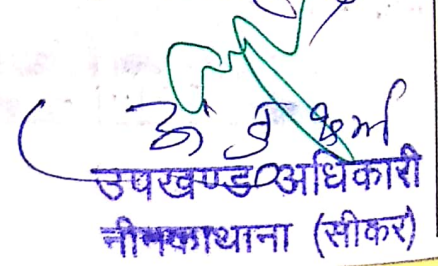 उपखण्ड अधिकारी
नीमकाथाना (सीकर)